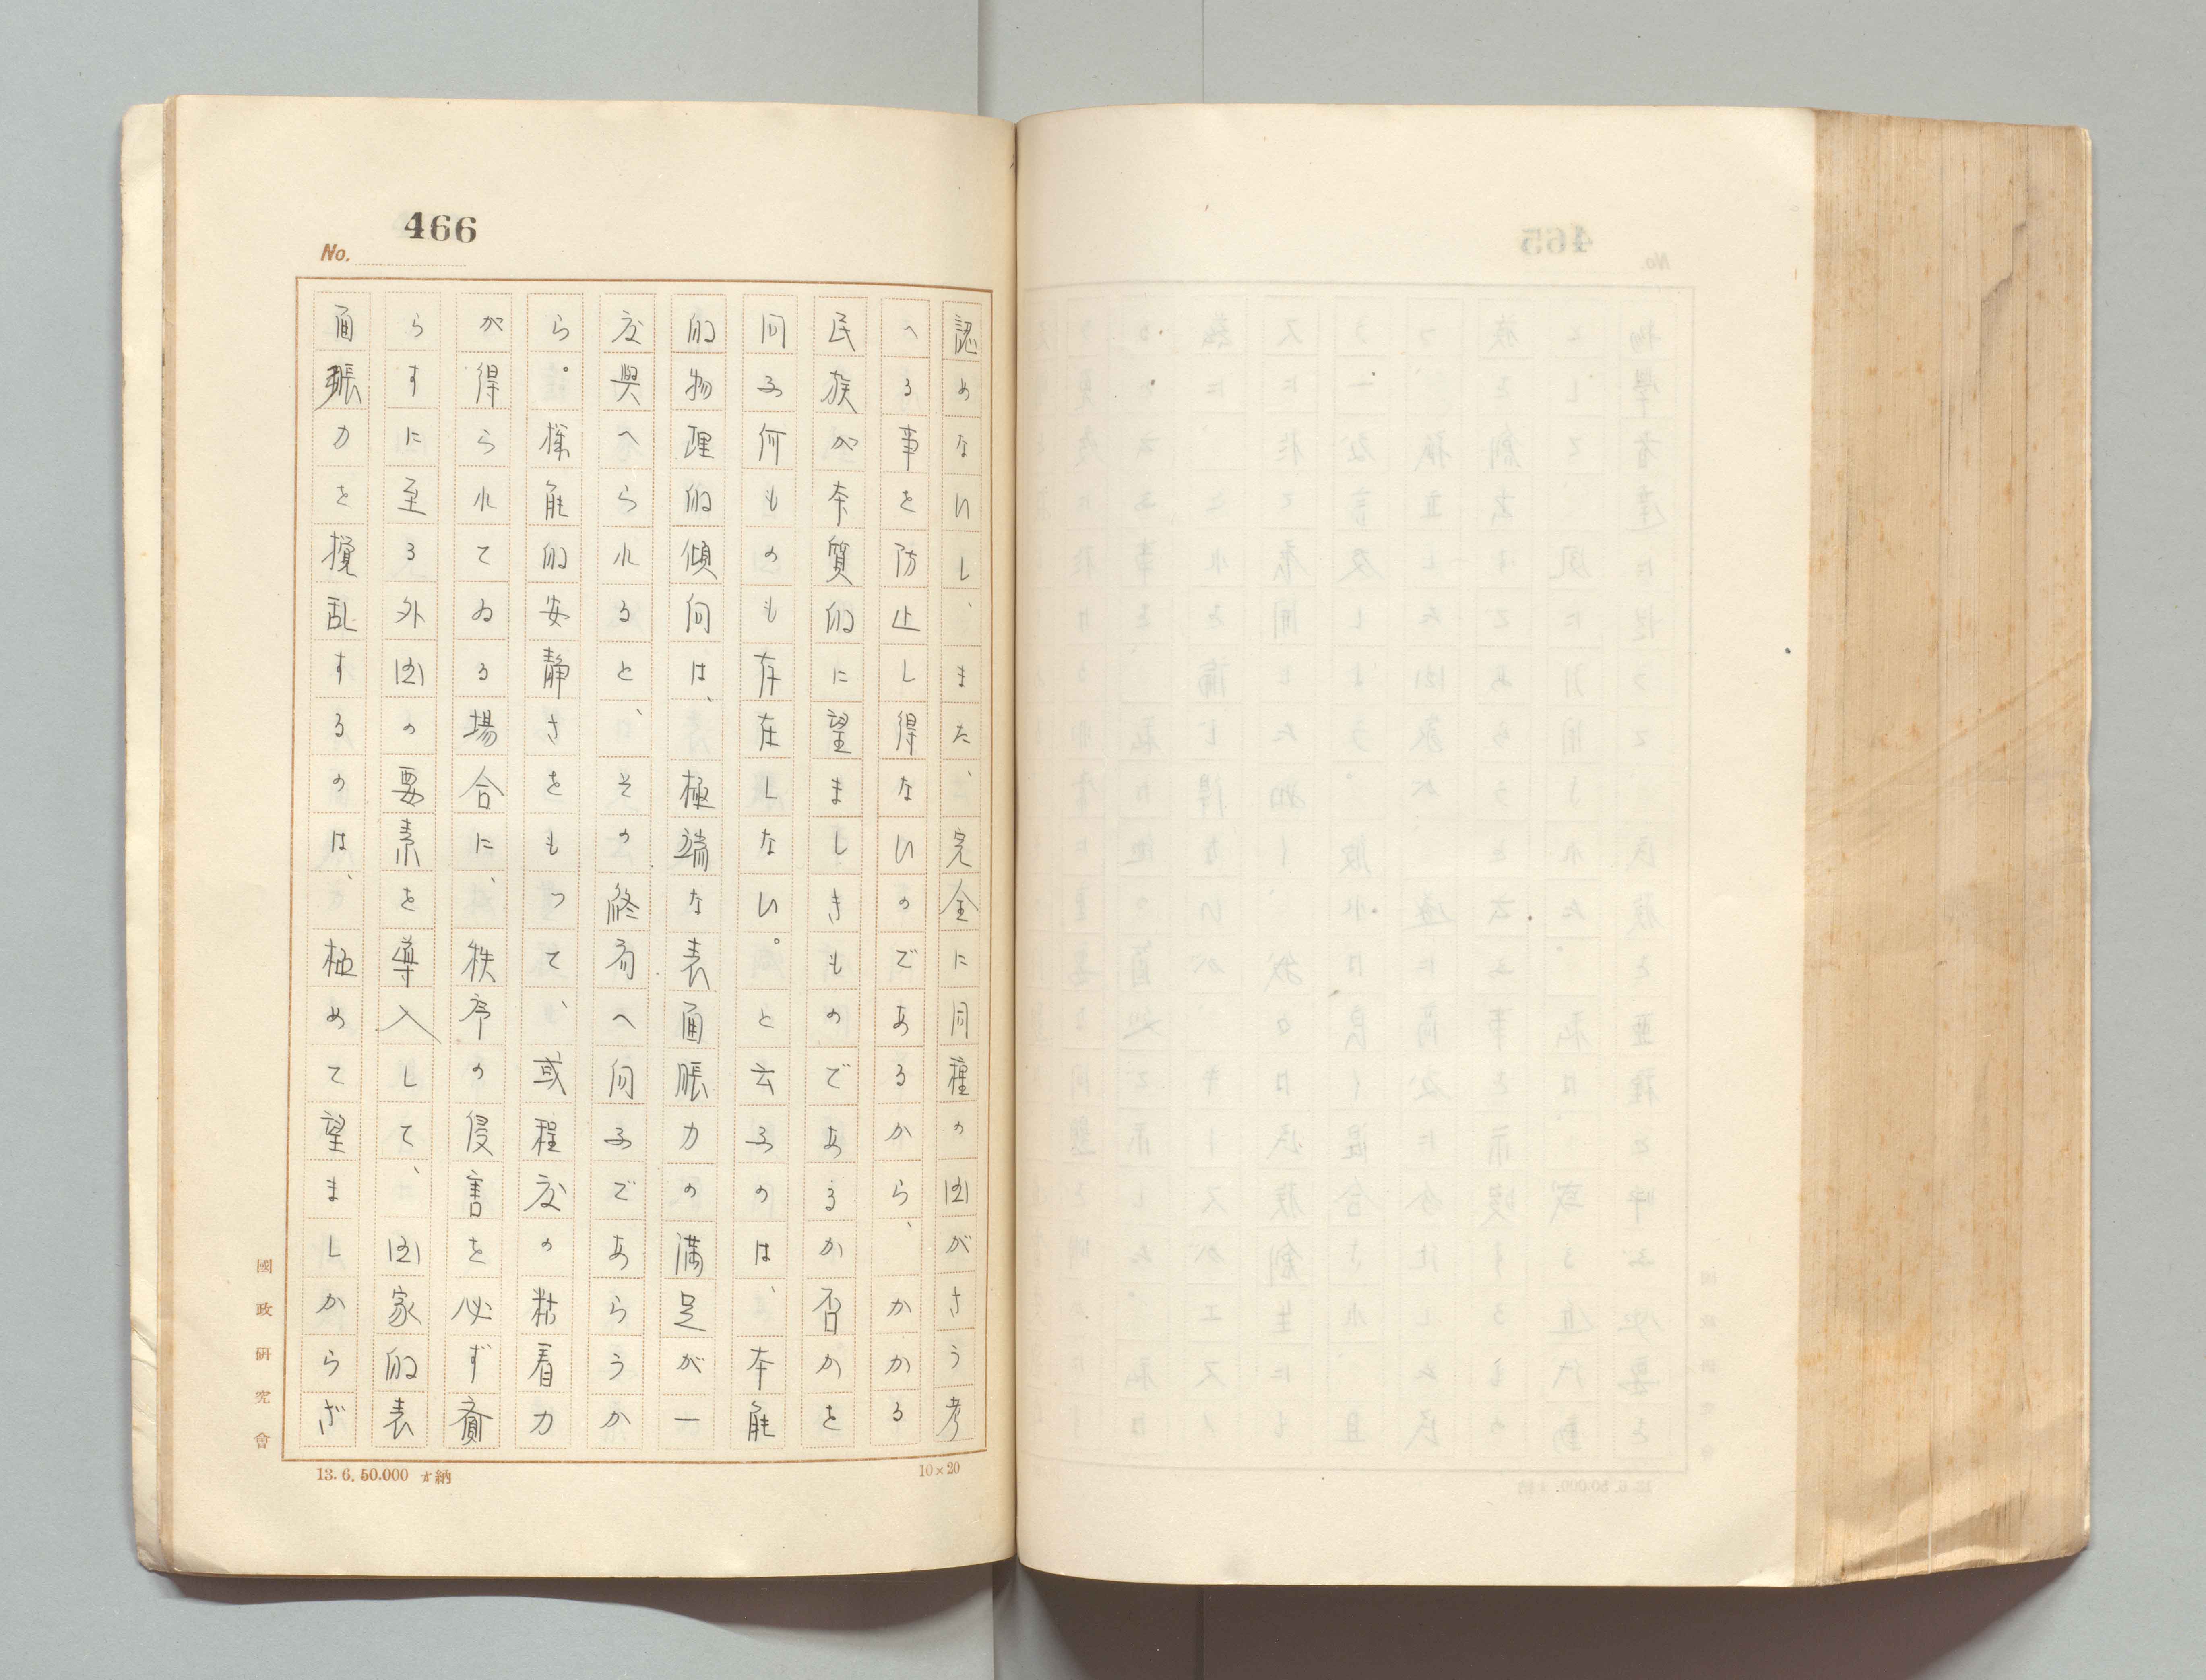 466
No.
認めないし、また、完全に同種の国がさう考
へる事を防止し得ないのであるから、かかる
民族が本質的に望ましきものであるか否かを
問ふ何ものも存在しない。と云ふのは、本能
的物理的傾向は、極端な表面脹力の満足が一
度與へられると、その終局へ向ふであらうか
ら。様能的安静さをもつて、或程度の粘着力
が得られてゐる場合に、秩序の侵害を必ず齎
らすに至る外国の要素を導入して、国家的表
面脹力を攪乱するのは、極めて望ましからざ
國政研究會
13. 6. 50.000 納
10×20